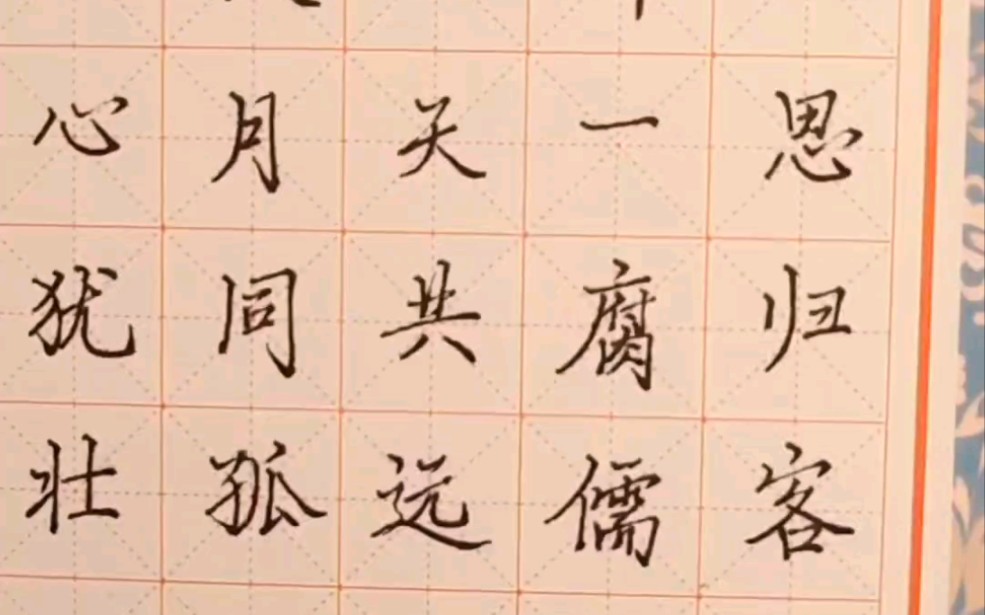 思归客
一腐儒
天共远
月同孤
心犹壮